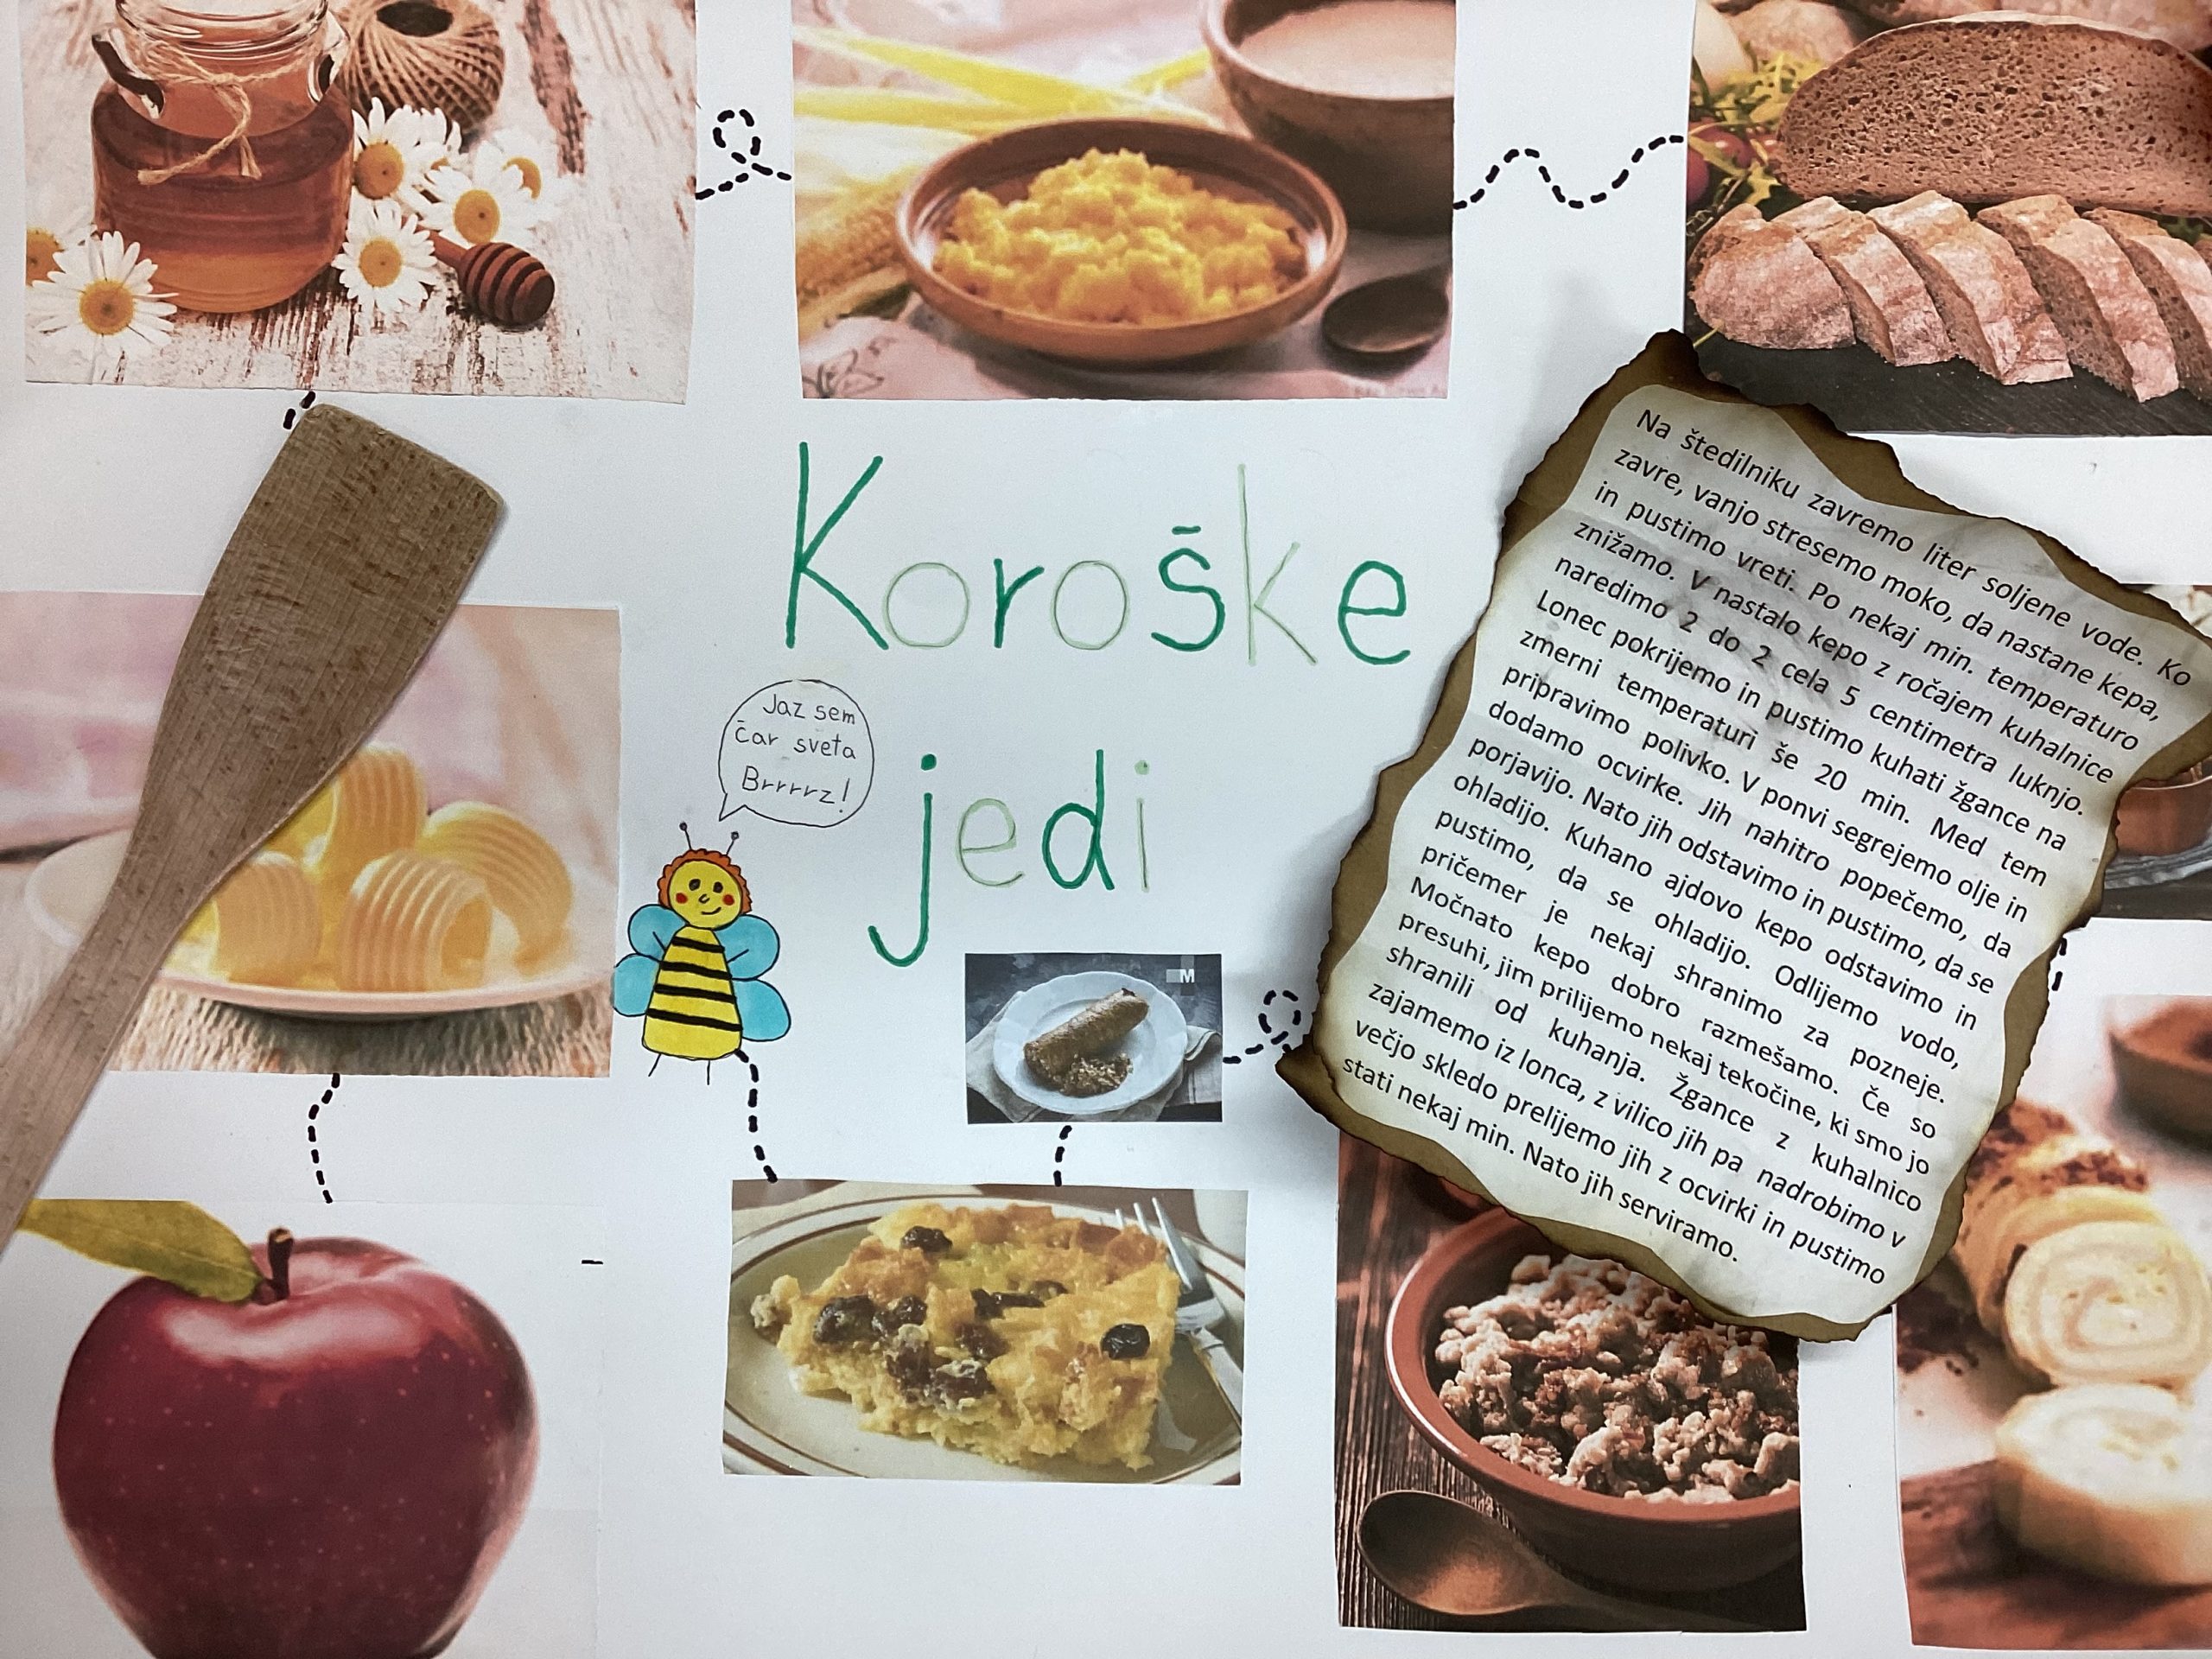 Koroške
jedi
Jaz sem
čar sveta
Brrrrz!
M
Na štedilniku zavremo liter soljene vode. Ko
zavre, vanjo stresemo moko, da nastane kepa,
in pustimo vreti. Po nekaj min. temperaturo
znižamo. V nastalo kepo z ročajem kuhalnice
naredimo 2 do 2 cela 5 centimetra luknjo.
Lonec pokrijemo in pustimo kuhati žgance na
zmerni temperaturi še 20 min. Med tem
pripravimo polivko. V ponvi segrejemo olje in
dodamo ocvirke. Jih nahitro popečemo, da
porjavijo. Nato jih odstavimo in pustimo, da se
ohladijo. Kuhano ajdovo kepo odstavimo in
pustimo, da se ohladijo. Odlijemo vodo,
pričemer je nekaj shranimo za pozneje.
Močnato kepo dobro razmešamo. Če so
presuhi, jim prilijemo nekaj tekočine, ki smo jo
shranili od kuhanja. Žgance z kuhalnico
zajamemo iz lonca, z vilico jih pa nadrobimo v
večjo skledo prelijemo jih z ocvirki in pustimo
stati nekaj min. Nato jih serviramo.